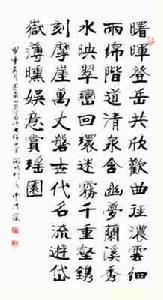 曙暉登岳共欣歡曲逕濃雲細
雨綿階道清泉含幽夢兩廊秀
水映翠巒回環迷霧千重壑鐫
刻摩崖萬丈磐古代名流遊岱
嶽薄曛娛意賞瑤園